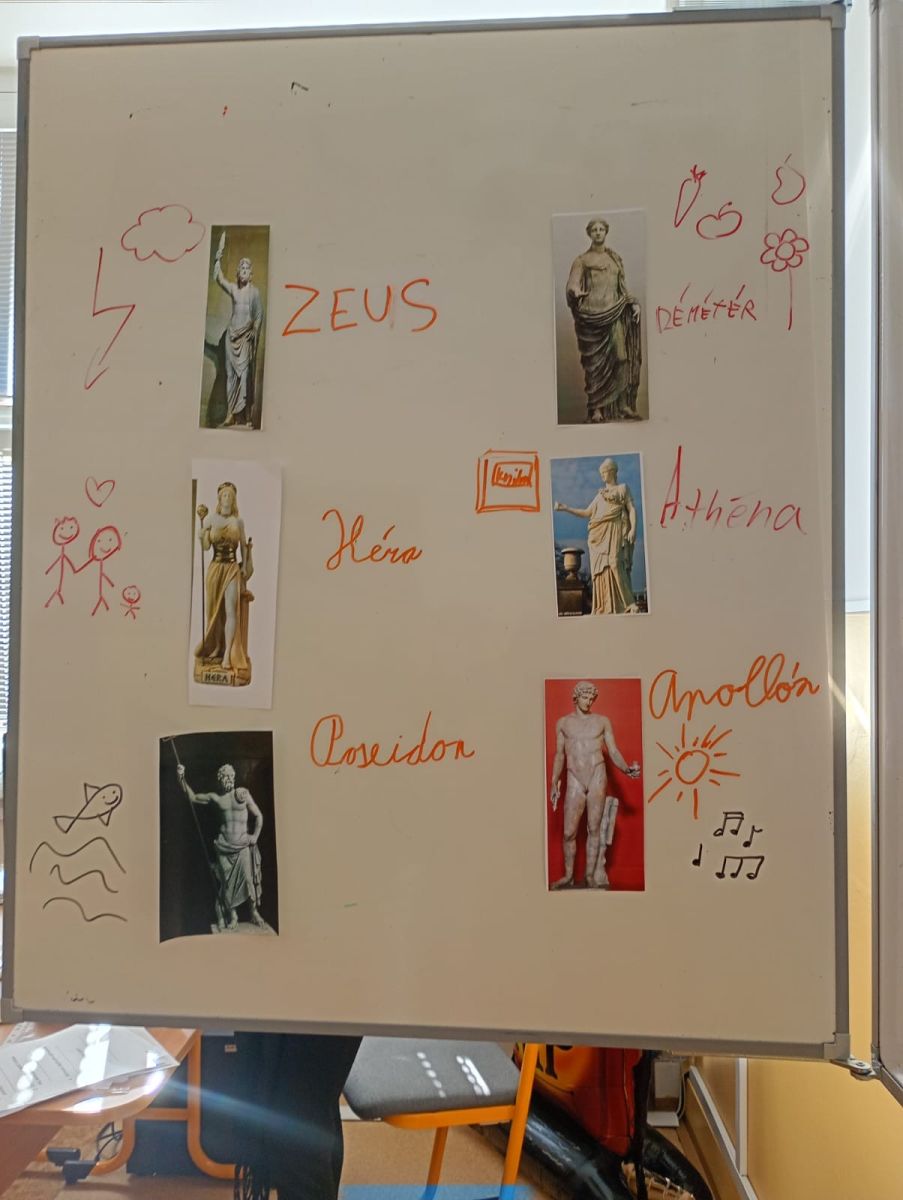 ZEUS
DÉMÉTÉR
Athéna
Héra
HERA
Poseidon
Apollón